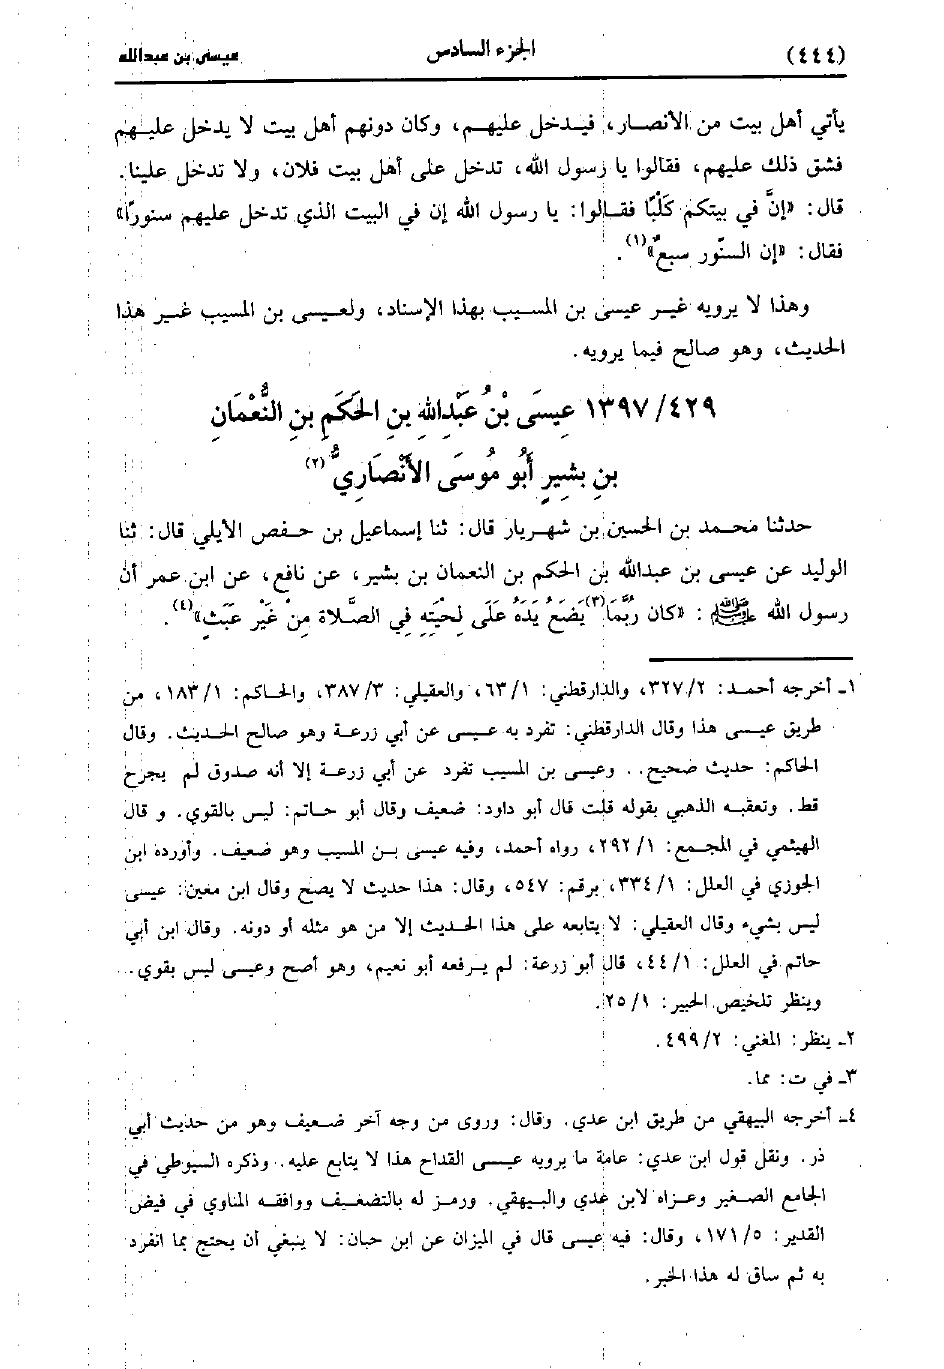 (٤٤٤) الجزء السادس عيسى بن عبدالله
يأتي أهل بيت من الأنصار، فيدخل عليهم، وكان دونهم أهل بيت لا يدخل عليهم
فشق ذلك عليهم، فقالوا يا رسول الله، تدخل على أهل بيت فلان، ولا تدخل علينا.
قال: «إنَّ في بيتكم كَلْبًا فقالوا: يا رسول الله إن في البيت الذي تدخل عليهم سنورًا»
فقال: «إن السنّور سبعٌ»(١).
وهذا لا يرويه غير عيسى بن المسيب بهذا الإسناد، ولعيسى بن المسيب غير هذا
الحديث، وهو صالح فيما يرويه.
١٣٩٧/٤٢٩ عِيسَى بْنُ عَبْدِاللهِ بنِ الحَكَمِ بنِ النُّعْمَانِ
بنِ بشِيرٍ أَبُو مُوسَى الأَنْصَارِيُّ(٢)
حدثنا محمد بن الحسين بن شهريار قال: ثنا إسماعيل بن حفص الايلي قال: ثنا
الوليد عن عيسى بن عبدالله بن الحكم بن النعمان بن بشير، عن نافع، عن ابن عمر أن
رسول الله ﷺ: «كان رُبَّمَا(٣) يَضَعُ يَدَهُ عَلَى لِحْيَتِهِ فِي الصَّلاة مِنْ غَيْرِ عَبَثٍ»(٤).
١ـ أخرجه أحمد: ٣٢٧/٢، والدارقطني: ٦٣/١، والعقيلي: ٣٨٧/٣، والحاكم: ١٨٣/١، من
طريق عيسى هذا وقال الدارقطني: تفرد به عيسى عن أبي زرعة وهو صالح الحديث. وقال
الحاكم: حديث صحيح.. وعيسى بن المسيب تفرد عن أبي زرعة إلا أنه صدوق لم يجرح
قط. وتعقبه الذهبي بقوله قلت قال أبو داود: ضعيف وقال أبو حاتم: ليس بالقوي. و قال
الهيثمي في المجمع: ٢٩٢/١، رواه أحمد، وفيه عيسى بن المسيب وهو ضعيف. وأورده ابن
الجوزي في العلل: ٣٣٤/١، برقم: ٥٤٧، وقال: هذا حديث لا يصح وقال ابن معين: عيسى
ليس بشيء وقال العقيلي: لا يتابعه على هذا الحديث إلا من هو مثله أو دونه. وقال ابن أبي
حاتم في العلل: ٤٤/١، قال أبو زرعة: لم يرفعه أبو نعيم، وهو أصح وعيسى ليس بقوي..
وينظر تلخيص الحبير: ٢٥/١.
٢ـ ينظر: المغني: ٤٩٩/٢.
٣ـ في ت: مما.
٤ـ أخرجه البيهقي من طريق ابن عدي. وقال: وروى من وجه آخر ضعيف وهو من حديث أبي
ذر. ونقل قول ابن عدي: عامة ما يرويه عيسى القداح هذا لا يتابع عليه. وذكره السيوطي في
الجامع الصغير وعزاه لابن عدي والبيهقي. ورمز له بالتضعيف ووافقه المناوي في فيض
القدير: ١٧١/٥، وقال: فيه عيسى قال في الميزان عن ابن حبان: لا ينبغي أن يحتج بما انفرد
به ثم ساق له هذا الخبر.